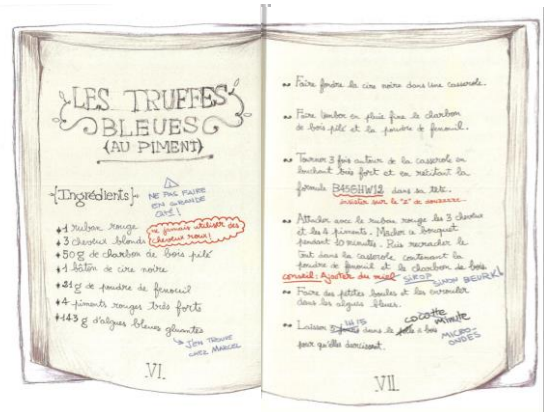 LES TRUFFES
BLEUES
(AU PIMENT)
Ingrédients
NE PAS FAIRE
EN GRANDE
QTÉ!
ne jamais utiliser des
cheveux roux!
1 ruban rouge
3 cheveux blonds
50 g de charbon de bois pilé
1 bâton de cire noire
21 g de poudre de fenouil
4 piments rouges très forts
143 g d'algues bleues gluantes
J'EN TROUVE
CHEZ MARCEL
VI
Faire fondre la cire noire dans une casserole.
Faire tomber en pluie fine le charbon
de bois pilé et la poudre de fenouil.
Tourner 3 fois autour de la casserole en
louchant bois fort et en récitant la
formule B456HW12 dans sa tête.
insister sur le "2" de douzzzzz.
Attacher avec le ruban rouge les 3 cheveux
et les 4 piments. Mâcher ce bouquet
pendant 10 minutes. Puis recracher le
tout dans la casserole contenant la
poudre de fenouil et le charbon de bois
conseil: Ajouter du miel SIROP SINON BEURK!
Faire des petites boules et les enrouler
dans les algues bleues.
Laisser dans le à bois
cocotte
minute
MICRO-
ONDES
pour qu'elles durcissent.
VII